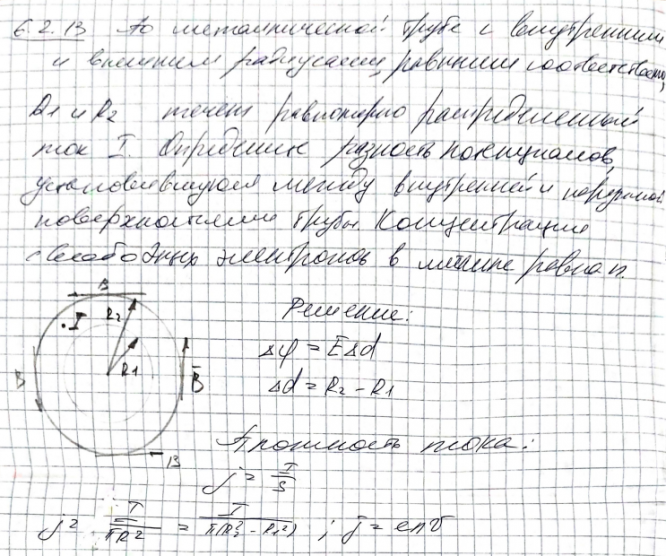 6.2.13 По металлической трубе с внутренним
и внешним радиусами, равными соответственно,
R1 и R2 течет равномерно распределенный
ток I. Определить разность потенциалов,
установившуюся между внутренней и наружной
поверхностями трубы. Концентрация
свободных электронов в металле равна n.
B
R2
I
R1
B
B
B
Решение:
Δφ = EΔd
Δd = R2 - R1
Плотность тока:
j = I/S
j = I/πR² = I/π(R2² - R1²) ; j = enV